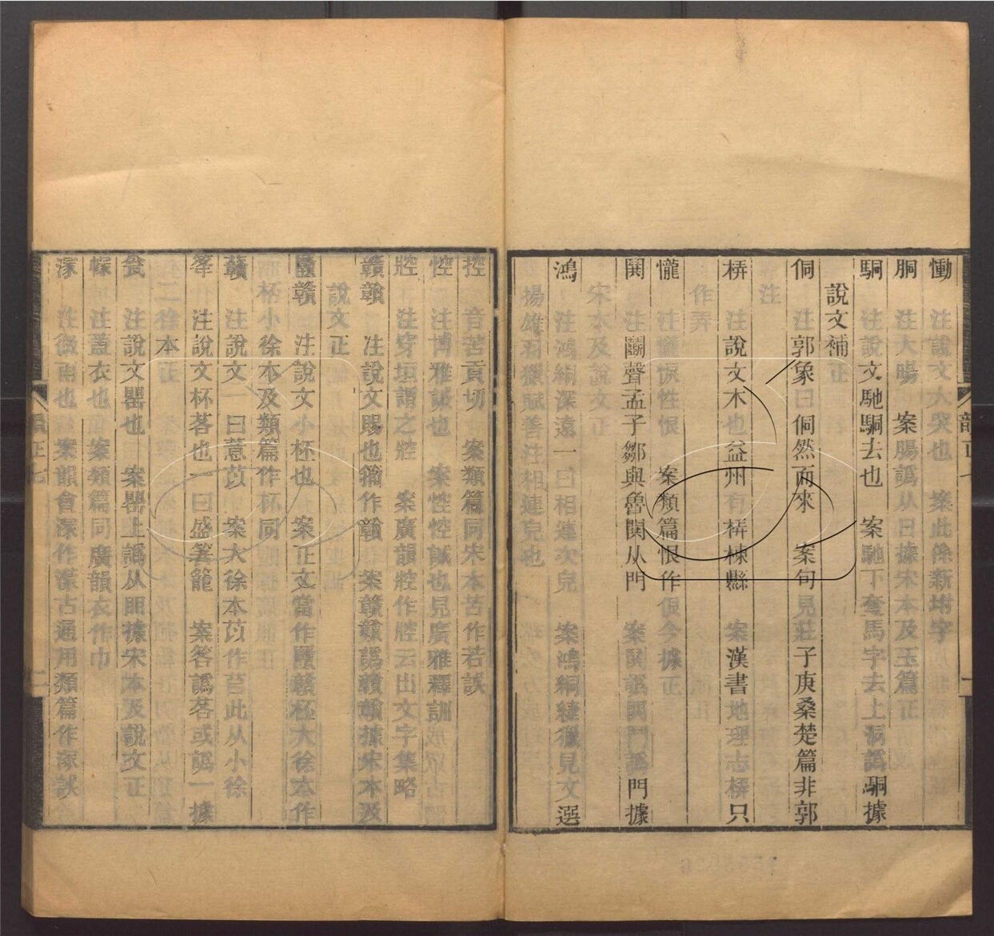 慟　注說文大哭也　案此係新坿字
胴　注大腸　案腸譌从日據宋本及玉篇正
駧　注說文馳駧去也　案馳下奪馬字去上洞譌駧據
說文補
侗　注郭象曰侗然而來　案句見莊子庚桑楚篇非郭
注
㭋　注說文木也益州有㭋棟縣　案漢書地理志㭋只
作弄
憹　注　悷性恨　案類篇恨作很今據正
鬨　注鬭聲孟子鄒與魯鬨从門　案鬨譌閧鬥譌門據
宋本及說文正
鴻　注鴻絧深遠一曰相連次皃　案鴻絧緁獵見文選
揚雄羽獵賦善注相連皃也
控　音苦貢切　案類篇同宋本苦作若誤
悾　注博雅誠也　案悾悾誠也見廣雅釋訓
腔　注穿垣謂之腔　案廣韻腔作䆫云出文字集略
贛　注說文賜也籀作　案　據宋本及
說文正
注說文小桮也　案正文當作　桮大徐本作
柄小徐本及類篇作杯同
贛　注說文一曰薏苡　案大徐本苡作苢此从小徐
注說文杯笿也一曰盛箸籠　案笿譌茖或譌一據
二徐本正
瓮　注說文罌也　案罌上譌从　據宋本及說文正
幏　注蓋衣也　案類篇同廣韻衣作巾
注微雨也　案韻會濛作蒙古通用類篇作　誤